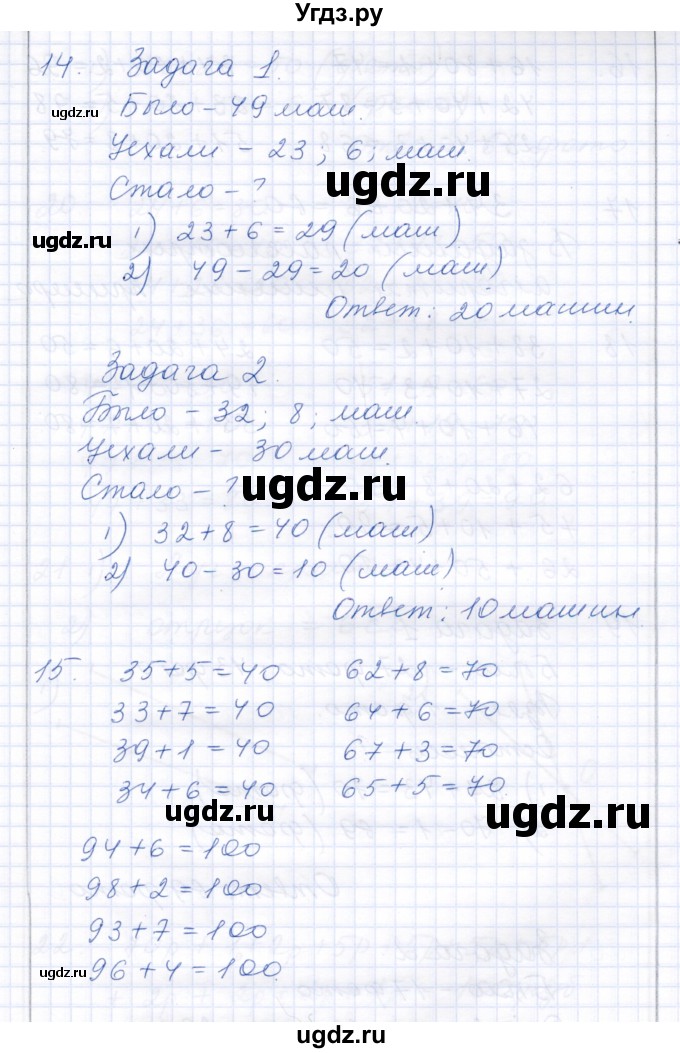 Угдз.ру
14. Задача 1.
Было - 49 маш.
Уехали - 23 ; 6 ; маш.
Стало - ?
1) 23 + 6 = 29 (маш)
2) 49 - 29 = 20 (маш)
Ответ: 20 машин.
Задача 2.
Было - 32 ; 8 ; маш.
Уехали - 30 маш.
Стало - ?
1) 32 + 8 = 40 (маш)
2) 40 - 30 = 10 (маш)
Ответ: 10 машин
15. 35 + 5 = 40 62 + 8 = 70
33 + 7 = 40 64 + 6 = 70
39 + 1 = 40 67 + 3 = 70
34 + 6 = 40 65 + 5 = 70.
94 + 6 = 100
98 + 2 = 100
93 + 7 = 100
96 + 4 = 100.
ugdz.ru
ugdz.ru
ugdz.ru
ugdz.ru
ugdz.ru
ugdz.ru
ugdz.ru
ugdz.ru